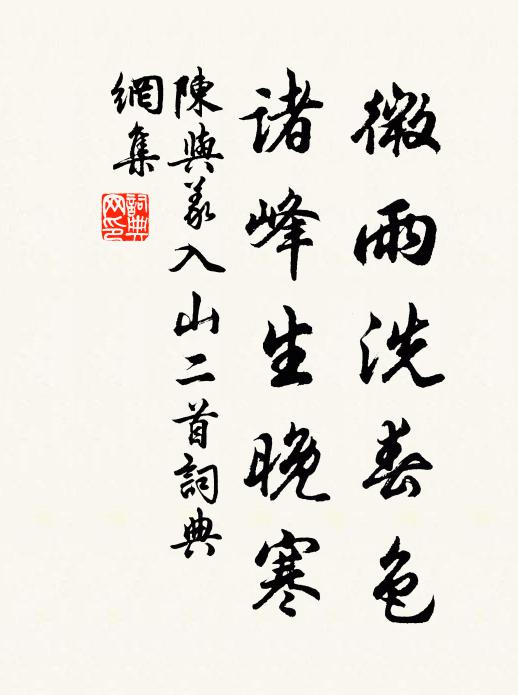 微雨洗春色
諸峰生晚寒
陳與義入山二首詞典
網集
詞典
网印